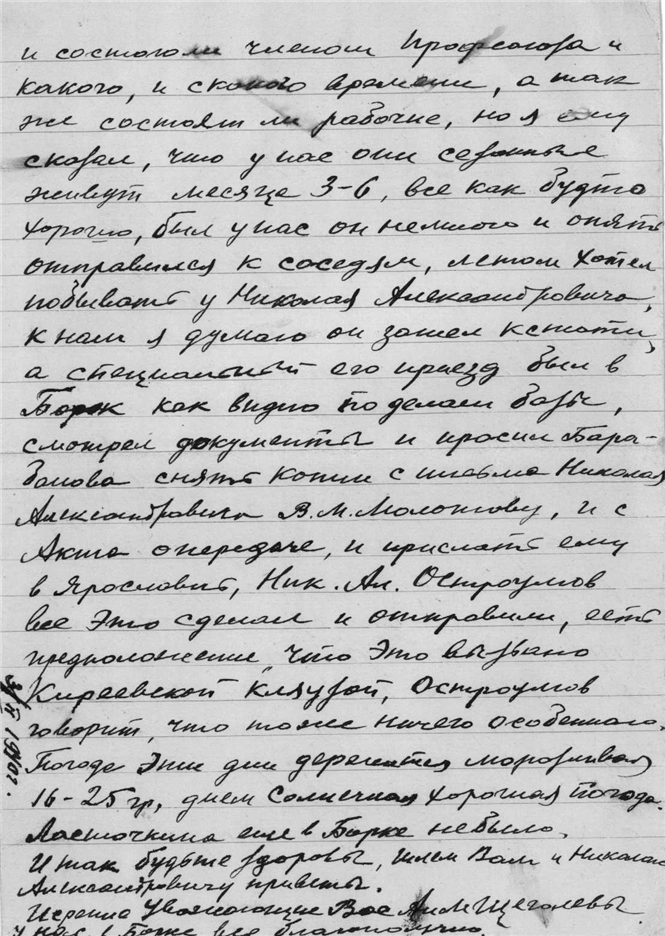 и состоял ли членом Профсоюза и
какого, и скокого времени, а так
же состоят ли рабочие, но я ему
сказал, что у нас они сезонные
живут месяца 3-6, все как будто
хорошо, был у нас он немного и опять
отправился к соседям, летом хотел
побывать у Николая Александровича,
к нам я думаю он зашел кстати,
а специальный его приезд был в
Борок как видно по делам базы,
смотрел документы и просил Бара-
банова снять копии с письма Николая
Александровича В.М. Молотову, и с
Акта опередаче, и прислать ему
в Ярославль, Ник. Ал. Остроумов
все это сделал и отправили, есть
предположение, что это вызвано
Киреевской кляузой, Остроумов
говорит, что тоже ничего особенного.
Погода эти дни держится морозливая
16-25 гр, днем солнечная хорошая погода.
Ласточкина еще в Борке небыло.
И так будьте здоровы, шлем Вам и Николаю
Александровичу приветы.
Искренне Уважающие Вас АиМ Щеголевы
У нас в Борке все благополучно.